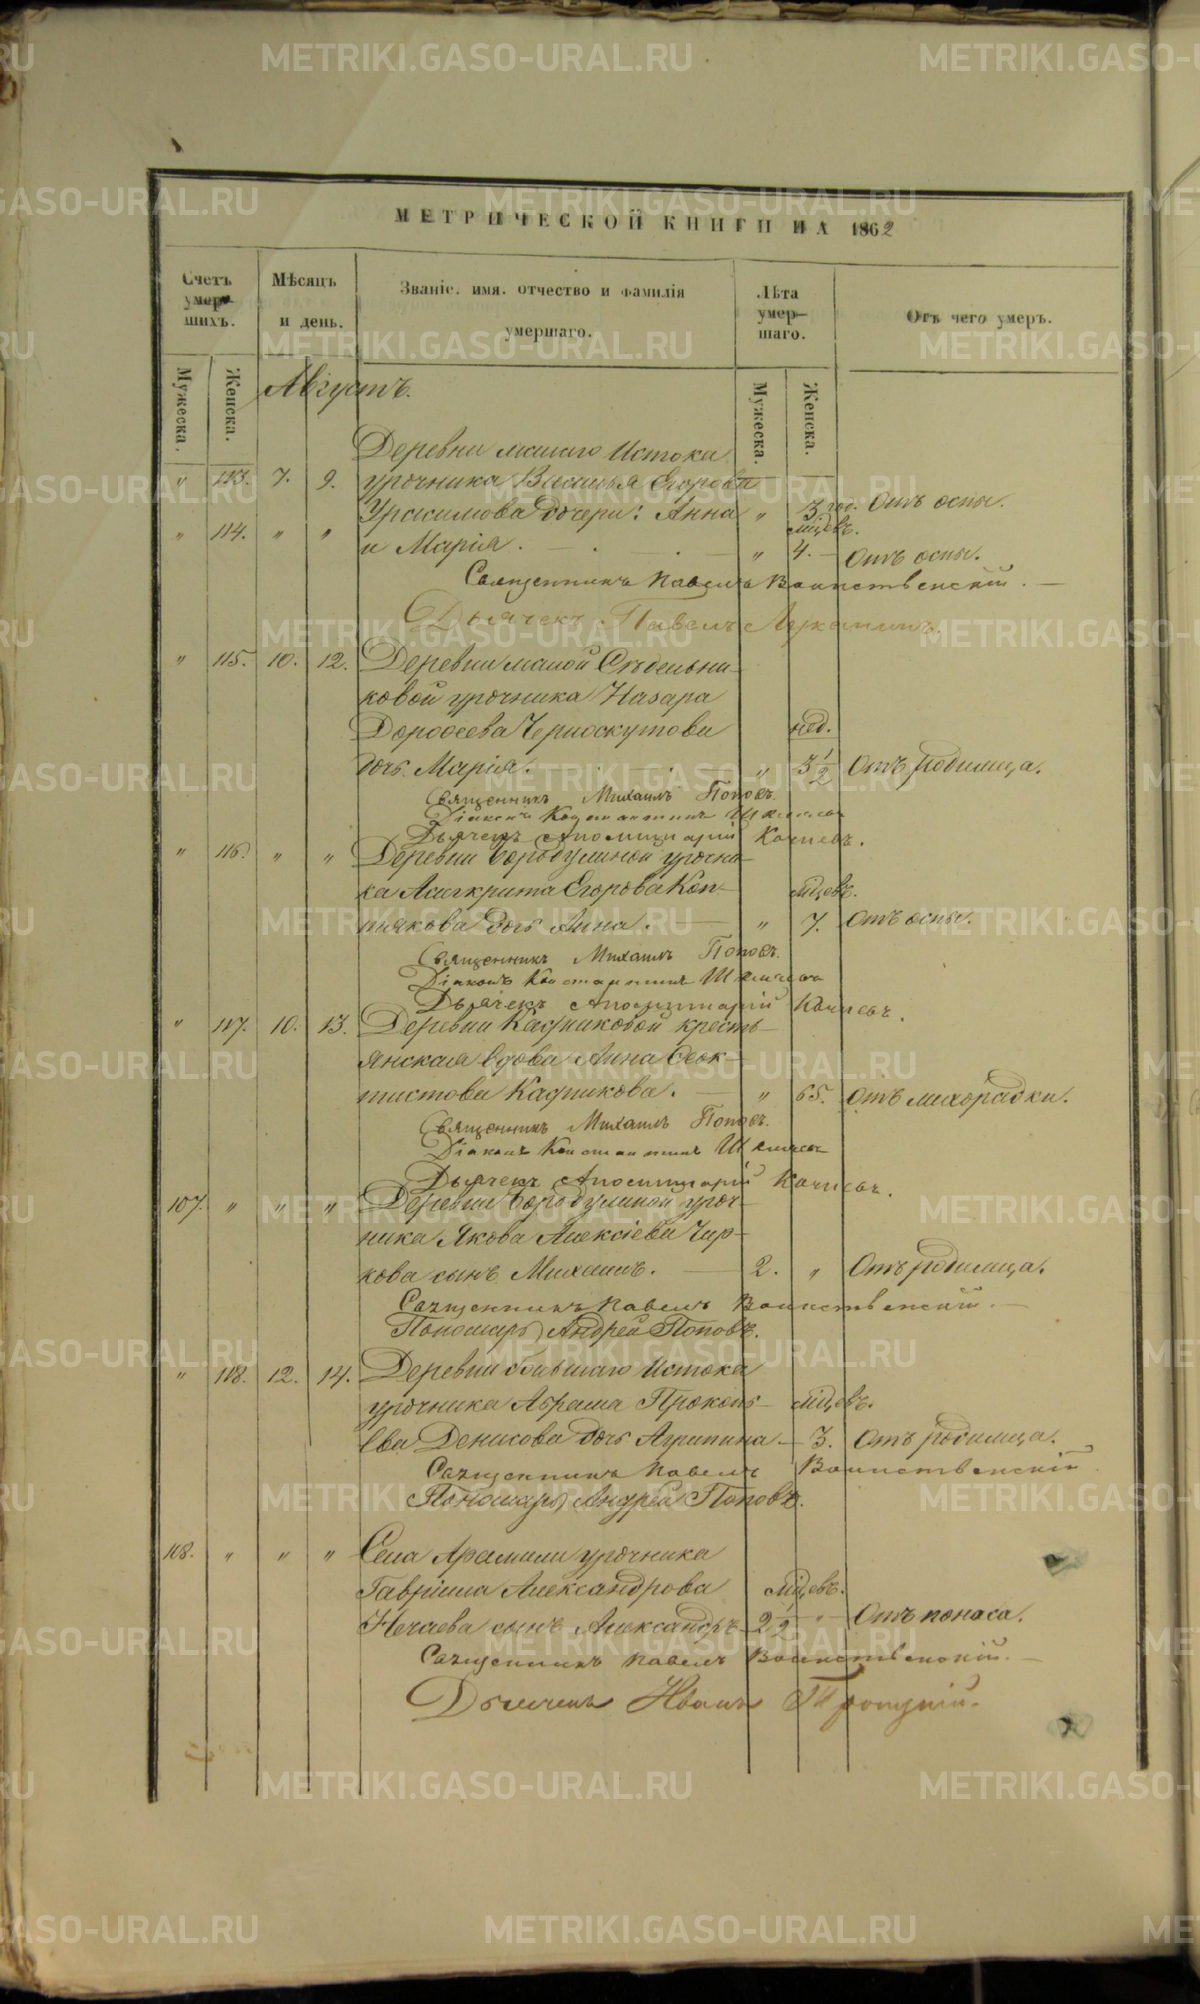 МЕТРИЧЕСКОЙ КНИГИ НА 1862
Счетъ умер- шихъ.
Мѣсяцъ и день.
Званіе. имя. отчество и фамилія умершаго.
Лѣта умер- шаго.
Отъ чего умеръ.
Мужеска. Женска.
Мужеска. Женска.
Августъ.
Деревни малаго Истока
" 113. 7. 9. урочника Василья Егорова
Дочери: Анна " 3 год. Отъ оспы.
мѣцевъ.
" 114. " " и Марія. " 4. Отъ оспы.
Священникъ Павелъ Воинственскій.
Дьячекъ Павелъ
" 115. 10. 12. Деревни малой Сѣдельни-
ковой урочника Назара
Дороѳеева Черноскутова нед.
дочь Марія. " 3 1/2 Отъ родимца.
Священникъ Михаилъ Поповъ.
Діаконъ Константинъ
Дьячекъ Аполлинарій
" 116. " " Деревни Бородулиной урочни-
ка Асигкрита Егорова Коп- мѣцевъ.
тякова дочь Анна. " 7. Отъ оспы.
Священникъ Михаилъ Поповъ.
Діаконъ Константинъ
Дьячекъ Аполлинарій
" 117. 10. 13. Деревни Кадниковой кресть-
янская вдова Анна Ѳеок-
тистова Кадникова. " 65. Отъ лихорадки.
Священникъ Михаилъ Поповъ.
Діаконъ Константинъ
Дьячекъ Аполлинарій
107. " " " Деревни Бородулиной уроч-
ника Якова Алексіева Чир-
кова сынъ Михаилъ. 2. " Отъ родимца.
Священникъ Павелъ Воинственскій.
Пономарь Андрей Поповъ.
" 118. 12. 14. Деревни большаго Истока
урочника Абрама Прокопь- мѣцевъ.
ева Денисова дочь Агрипина 3. Отъ родимца.
Священникъ Павелъ Воинственскій
Пономарь Андрей Поповъ.
108. " " " Села Арамили урочника
Гавріила Александрова мѣцевъ.
Нечаева сынъ Александръ 2 1/2 " Отъ поноса.
Священникъ Павелъ Воинственскій.
Дьячекъ Иванъ Троицкій.
METRIKI.GASO-URAL.RU